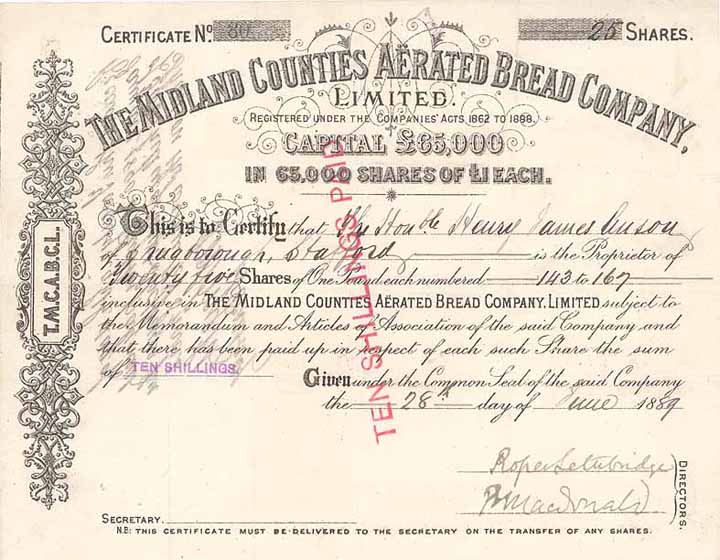 CERTIFICATE No. 80
25 SHARES.
THE MIDLAND COUNTIES AËRATED BREAD COMPANY,
LIMITED.
REGISTERED UNDER THE COMPANIES' ACTS 1862 TO 1888.
CAPITAL £65,000
IN 65,000 SHARES OF £1 EACH.
T.M.C.A.B.C.L.
This is to Certify that The Honble Henry James Anson
of Stafford is the Proprietor of
Twenty five Shares of One Pound, each numbered 143 to 167
inclusive in THE MIDLAND COUNTIES AËRATED BREAD COMPANY. LIMITED subject to
the Memorandum and Articles of Association of the said Company and
that there has been paid up in respect of each such Share the sum
of TEN SHILLINGS.
Given under the Common Seal of the said Company
the 28th day of June 1889
TEN SHILLINGS PAID
Roper Lethbridge
Macdonald
DIRECTORS.
SECRETARY.
N.B: THIS CERTIFICATE MUST BE DELIVERED TO THE SECRETARY ON THE TRANSFER OF ANY SHARES.